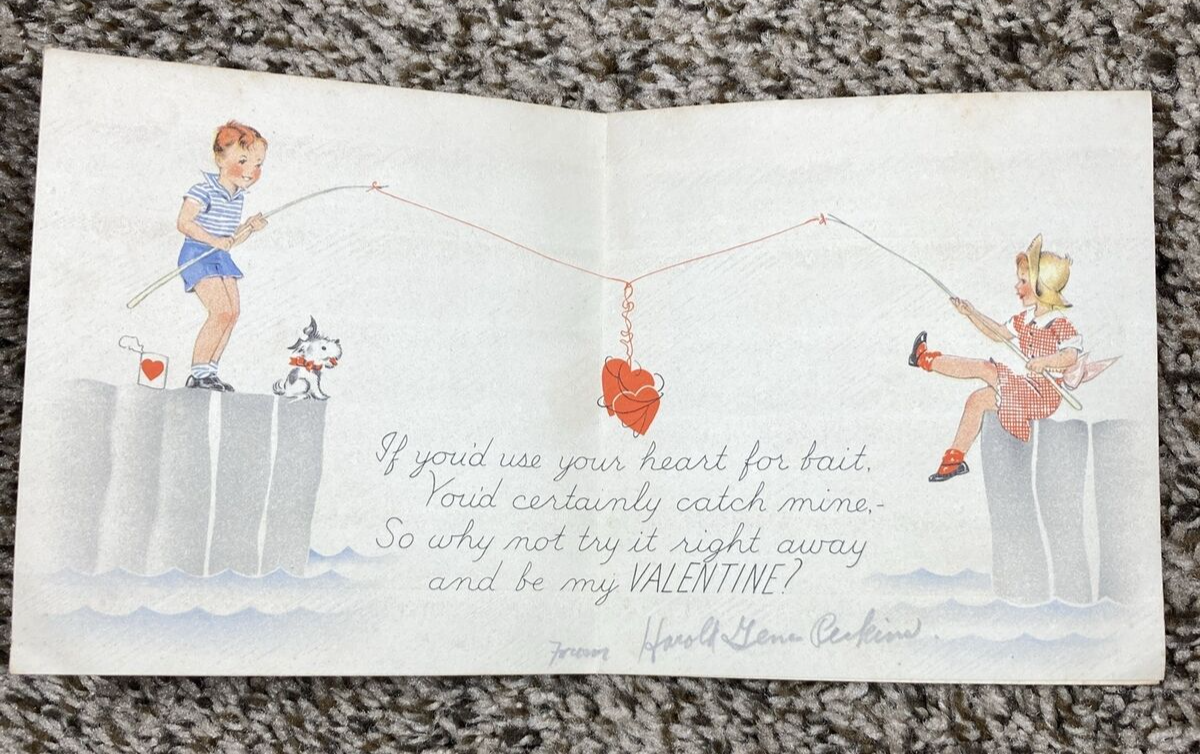 If you'd use your heart for bait,
You'd certainly catch mine,-
So why not try it right away
and be my VALENTINE?
From Harold Gene Perkins.